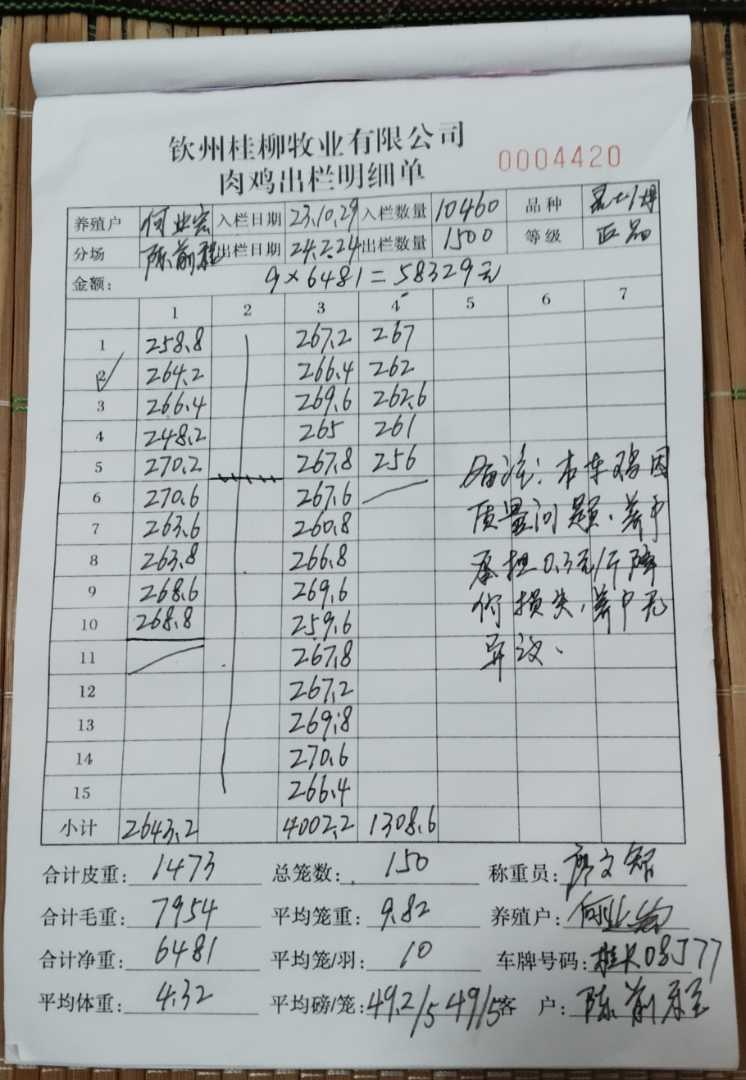 钦州桂柳牧业有限公司
肉鸡出栏明细单 0004420
养殖户 何业宏 入栏日期 23.10.29 入栏数量 10460 品种
分场 陈前程 出栏日期 24.2.24 出栏数量 1500 等级 正品
金额: 9×6481=58329元
1 2 3 4 5 6 7
1 258.8 267.2 267
2 264.2 266.4 262
3 266.4 269.6 262.6
4 248.2 265 261
5 270.2 267.8 256
6 270.6 267.6
7 263.6 260.8
8 263.8 266.8
9 268.6 269.6
10 268.8 259.6
11 267.8
12 267.2
13 269.8
14 270.6
15 266.4
小计 2643.2 4002.2 1308.6
备注:本车鸡因
质量问题、养户
承担0.3元/斤降
价损失,养户无
异议、
合计皮重: 1473 总笼数: 150 称重员:
合计毛重: 7954 平均笼重: 9.82 养殖户:
合计净重: 6481 平均笼/羽: 10 车牌号码: 桂K08J77
平均体重: 4.32 平均磅/笼: 49.2/5 49/5 客户: 陈前程